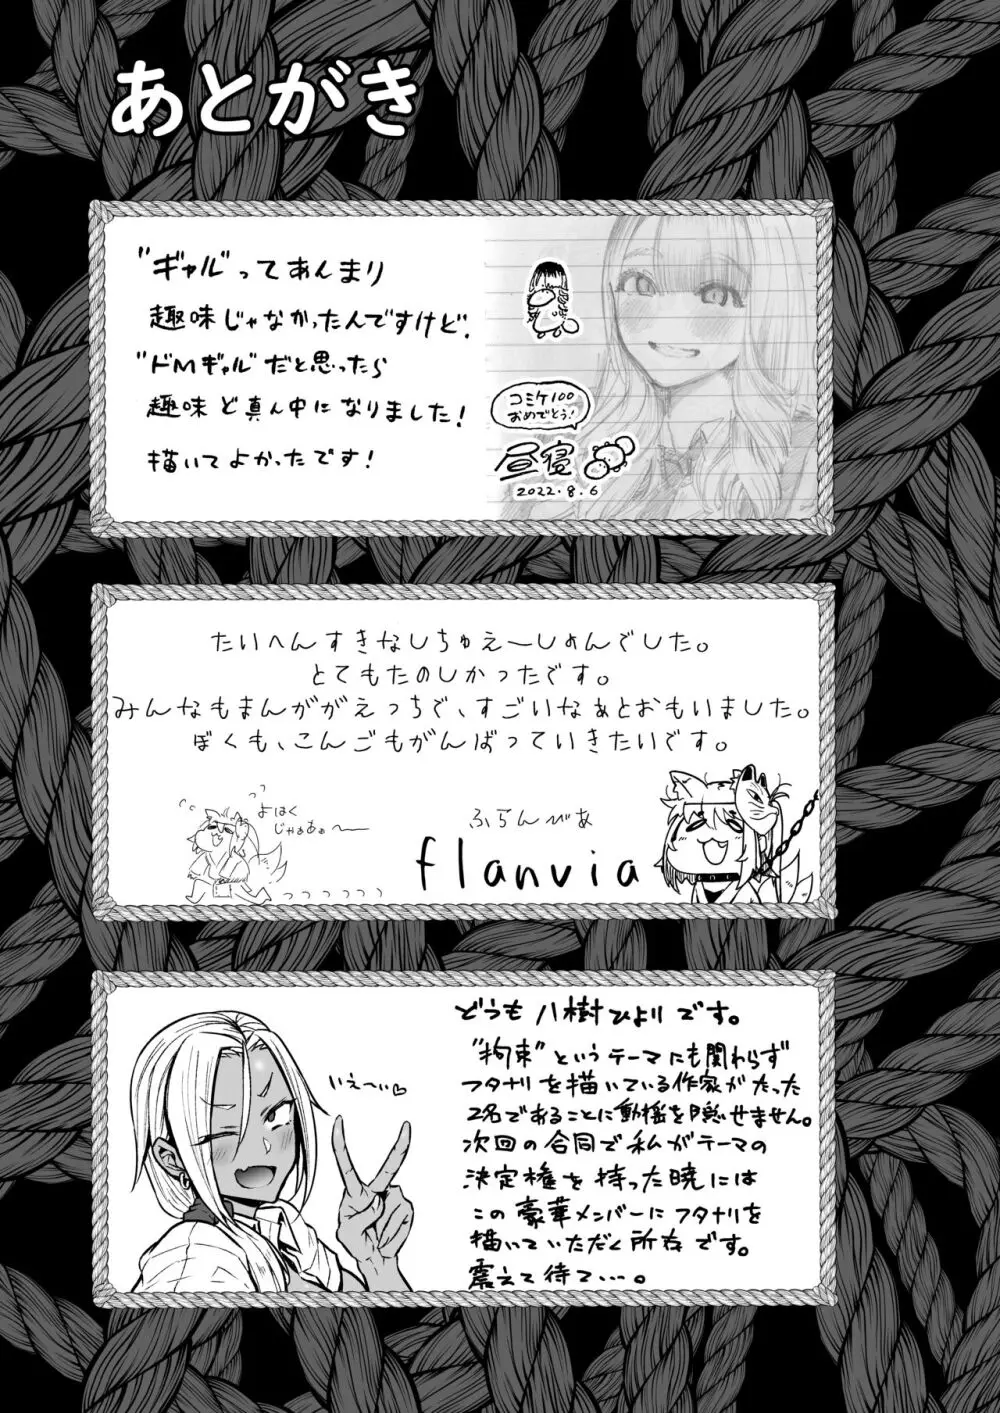 あとがき
"ギャル"ってあんまり
趣味じゃなかったんですけど、
"ドMギャル"だと思ったら
趣味ど真ん中になりました！
描いてよかったです！
コミケ100
おめでとう！
昼寝
2022.8.6
たいへんすきなしちゅえーしょんでした。
とてもたのしかったです。
みんなもまんががえっちで、すごいなぁとおもいました。
ぼくも、こんごもがんばっていきたいです。
よはく
じゃぁあぁ〜
ふらんびあ
flanvia
いえ〜い♡
どうも八樹ひよりです。
"拘束"というテーマにも関わらず
フタナリを描いている作家がたった
2名であることに動揺を隠せません。
次回の合同で私がテーマの
決定権を持った暁には
この豪華メンバーにフタナリを
描いていただく所存です。
震えて待て…。